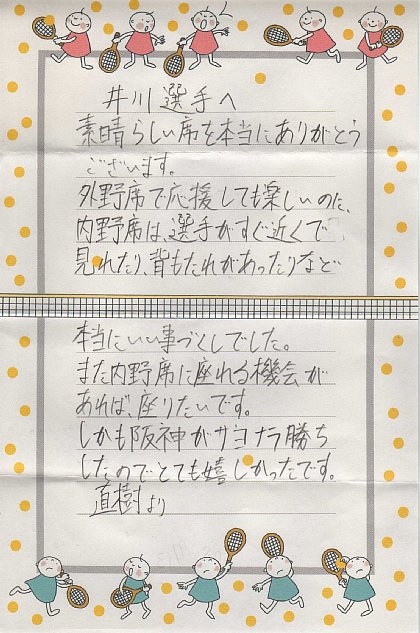 井川選手へ
素晴らしい席を本当にありがとう
ございます。
外野席で応援しても楽しいのに、
内野席は、選手がすぐ近くで
見れたり、背もたれがあったりなど
本当にいい事づくしでした。
また内野席に座れる機会が
あれば、座りたいです。
しかも阪神がサヨナラ勝ち
したのでとても嬉しかったです。
直樹より